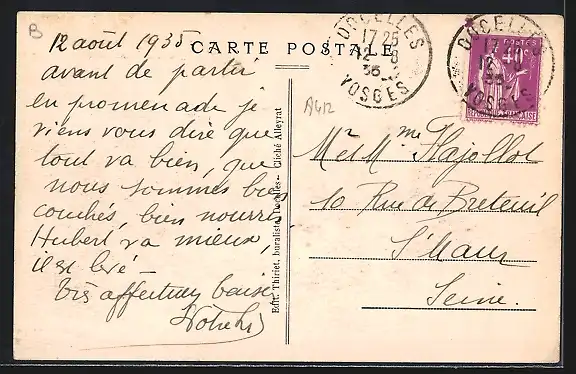 B
12 août 1935
CARTE POSTALE
avant de partir
en promenade je
viens vous dire que
tout va bien, que
nous sommes bien
couchés, bien nourris
Hubert va mieux,
il est levé —
Très affectueux baisers
Edit. Thiriet, buraliste, Docelles - Cliché Alleyrat
A412
DOCELLES
17 25
12 - 8
35
VOSGES
DOCELLES
17 25
12
35
VOSGES
POSTES
40c
RÉPUBLIQUE FRANÇAISE
Mr et Mme Flajollot
10 Rue de Breteuil
St Maur
Seine.